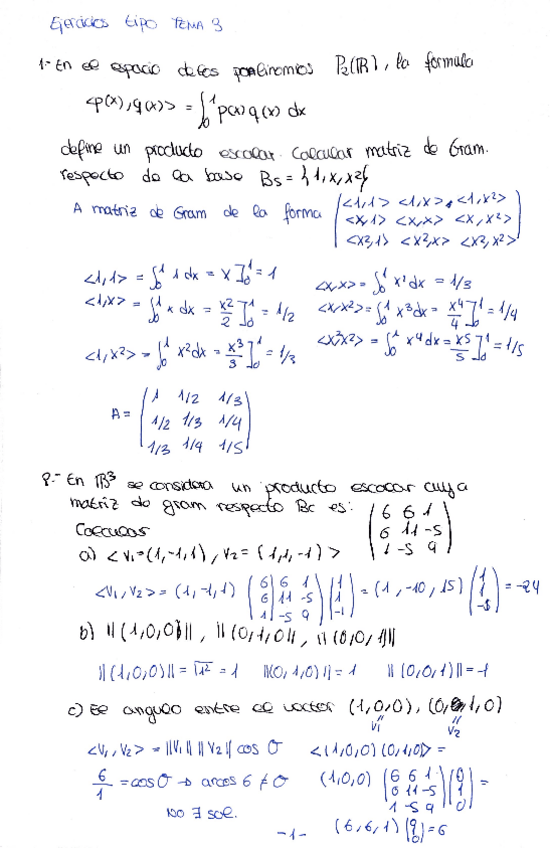 Ejercicios tipo TEMA 3
1.- En el espacio de los ponlinomios P₂(ℝ), la formula
<p(x), q(x)> = ∫₀¹ p(x) q(x) dx
define un producto escalar. Calcular matriz de Gram.
respecto de la base Bs = {1, x, x²}
A matriz de Gram de la forma (<1,1> <1,x> <1,x²>
<x,1> <x,x> <x,x²>
<x²,1> <x²,x> <x²,x²>)
<1,1> = ∫₀¹ 1 dx = x]₀¹ = 1
<1,x> = ∫₀¹ x dx = x²/2]₀¹ = 1/2
<1,x²> = ∫₀¹ x² dx = x³/3]₀¹ = 1/3
<x,x> = ∫₀¹ x¹ dx = 1/3
<x,x²> = ∫₀¹ x³ dx = x⁴/4]₀¹ = 1/4
<x²,x²> = ∫₀¹ x⁴ dx = x⁵/5]₀¹ = 1/5
A = (1 1/2 1/3
1/2 1/3 1/4
1/3 1/4 1/5)
2.- En ℝ³ se considera un producto escalar cuya
matriz de gram respecto Bc es: (6 6 1
6 11 -5
1 -5 9)
Calcular
a) < v₁=(1,-1,1), v₂=(1,1,-1) >
<v₁,v₂> = (1,-1,1) (6 6 1
6 11 -5
1 -5 9) (1
1
-1) = (1, -10, 15) (1
1
-1) = -24
b) ||(1,0,0)||, ||(0,1,0||, ||(0,0,1)||
||(1,0,0)|| = √1² = 1 ||(0,1,0)|| = 1 ||(0,0,1)|| = -1
c) El angulo entre el vector (1,0,0), (0,1,0)
v₁ v₂
<v₁,v₂> = ||v₁|| ||v₂|| cos σ <(1,0,0) (0,1,0> =
6/1 = cos σ → arcos 6 ≠ σ (1,0,0) (6 6 1
6 11 -5
1 -5 9) (0
1
0) =
No ∃ sol.
(6,6,1) = 6
-1-